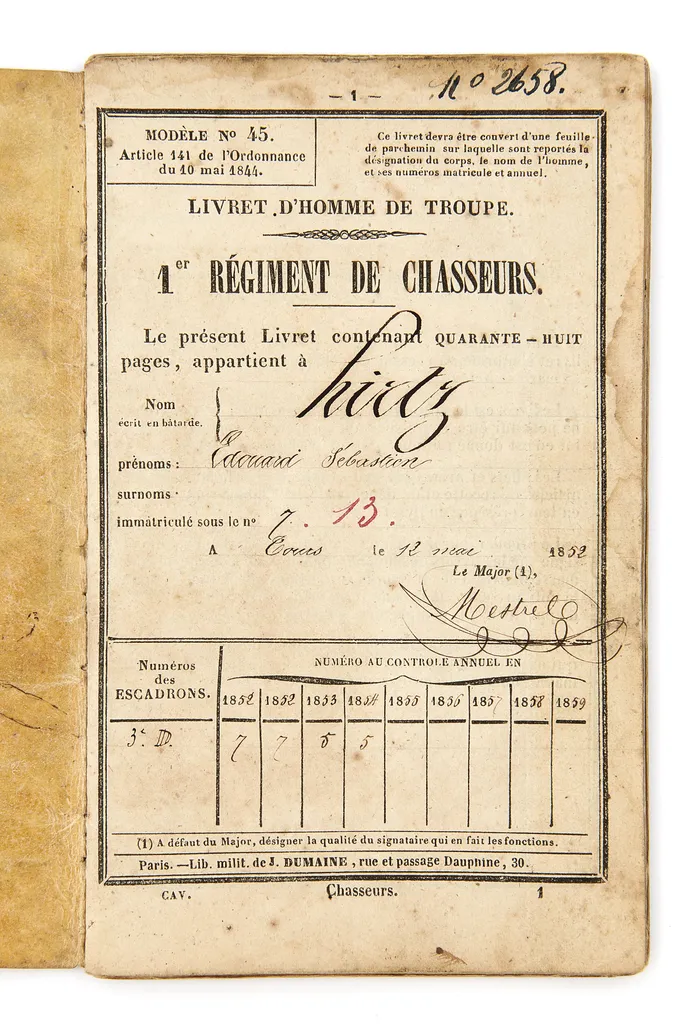 — 1 —
No 2658.
MODÈLE No 45.
Article 141 de l'Ordonnance
du 10 mai 1844.
Ce livret devra être couvert d'une feuille
de parchemin sur laquelle sont reportés la
désignation du corps, le nom de l'homme,
et ses numéros matricule et annuel.
LIVRET D'HOMME DE TROUPE.
1er RÉGIMENT DE CHASSEURS.
Le présent Livret contenant QUARANTE-HUIT
pages, appartient à
hirtz
Nom
écrit en bâtarde.
prénoms : Edouard Sébastien
surnoms
immatriculé sous le no 7. 13.
A Tours le 12 mai 1852
Le Major (1),
Mestre
Numéros
des
ESCADRONS.
NUMÉRO AU CONTROLE ANNUEL EN
1852 1852 1853 1854 1855 1856 1857 1858 1859
3e D. 7 7 5 5
(1) A défaut du Major, désigner la qualité du signataire qui en fait les fonctions.
Paris. —Lib. milit. de J. DUMAINE, rue et passage Dauphine, 30.
CAV. Chasseurs. 1